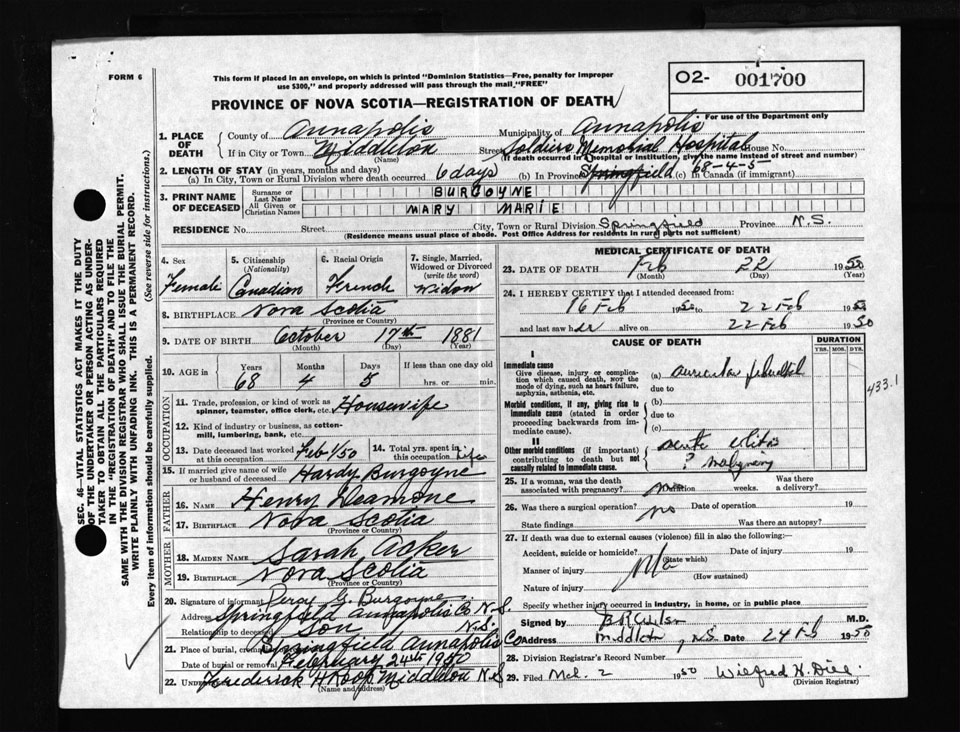 FORM 6
This form if placed in an envelope, on which is printed "Dominion Statistics—Free, penalty for improper
use $300," and properly addressed will pass through the mail "FREE"
O2- 001700
For use of the Department only
PROVINCE OF NOVA SCOTIA—REGISTRATION OF DEATH
SEC. 46—VITAL STATISTICS ACT MAKES IT THE DUTY
OF THE UNDERTAKER OR PERSON ACTING AS UNDER-
TAKER TO OBTAIN ALL THE PARTICULARS REQUIRED
IN THE "REGISTRATION OF DEATH" AND TO FILE THE
SAME WITH THE DIVISION REGISTRAR WHO SHALL ISSUE THE BURIAL PERMIT.
WRITE PLAINLY WITH UNFADING INK. THIS IS A PERMANENT RECORD.
Every item of information should be carefully supplied. (See reverse side for instructions.)
1. PLACE OF DEATH County of Annapolis Municipality of Annapolis
If in City or Town Middleton (Name) Street Soldiers Memorial Hospital House No.
(If death occurred in a hospital or institution, give the name instead of street and number)
2. LENGTH OF STAY (in years, months and days)
(a) In City, Town or Rural Division where death occurred 6 days (b) In Province Springfield 68-4-5 (c) In Canada (if immigrant)
3. PRINT NAME OF DECEASED Surname or Last Name BURGOYNE
All Given or Christian Names MARY MARIE
RESIDENCE No. Street City, Town or Rural Division Springfield Province N.S.
(Residence means usual place of abode. Post Office Address for residents in rural parts not sufficient)
4. Sex Female
5. Citizenship (Nationality) Canadian
6. Racial Origin French
7. Single, Married, Widowed or Divorced (write the word) Widow
8. BIRTHPLACE Nova Scotia
(Province or Country)
9. DATE OF BIRTH October 17th 1881
(Month) (Day) (Year)
10. AGE in Years 68 Months 4 Days 5 If less than one day old hrs. or min.
OCCUPATION
11. Trade, profession, or kind of work as spinner, teamster, office clerk, etc. Housewife
12. Kind of industry or business, as cotton-mill, lumbering, bank, etc.
13. Date deceased last worked at this occupation Feb 1/50
14. Total yrs. spent in this occupation Life
15. If married give name of wife or husband of deceased Hardy Burgoyne
FATHER
16. NAME Henry
17. BIRTHPLACE Nova Scotia
(Province or Country)
MOTHER
18. MAIDEN NAME Sarah Acker
19. BIRTHPLACE Nova Scotia
(Province or Country)
20. Signature of informant Percy G. Burgoyne
Address Springfield Annapolis Co N.S.
Relationship to deceased Son N.S.
21. Place of burial, Springfield Annapolis Co
Date of burial or removal February 24th 1950
22. Frederick H Roop Middleton N.S
(Name and address)
MEDICAL CERTIFICATE OF DEATH
23. DATE OF DEATH Feb 22 1950
(Month) (Day) (Year)
24. I HEREBY CERTIFY that I attended deceased from
16 Feb 1950 to 22 Feb 1950
and last saw her alive on 22 Feb 1950
CAUSE OF DEATH
DURATION
YRS. MOS. DYS.
I
Immediate cause
Give disease, injury or complication which caused death, NOT the mode of dying, such as heart failure, asphyxia, asthenia, etc.
(a) auricular
due to
Morbid conditions, if any, giving rise to immediate cause (stated in order proceeding backwards from immediate cause).
(b)
due to
(c)
433.1
II
Other morbid conditions (if important) contributing to death but not causally related to immediate cause.
acute
?
25. If a woman, was the death associated with pregnancy? no Duration weeks. Was there a delivery?
26. Was there a surgical operation? no Date of operation 19
State findings Was there an autopsy?
27. If death was due to external causes (violence) fill in also the following:
Accident, suicide or homicide? Date of injury 19
(State which)
Manner of injury
(How sustained)
Nature of injury
Specify whether injury occurred in industry, in home, or in public place
Signed by M.D.
Address Middleton, N.S. Date 24 Feb 1950
28. Division Registrar's Record Number
29. Filed Mch. 2 1950 Wilfred H.
(Division Registrar)